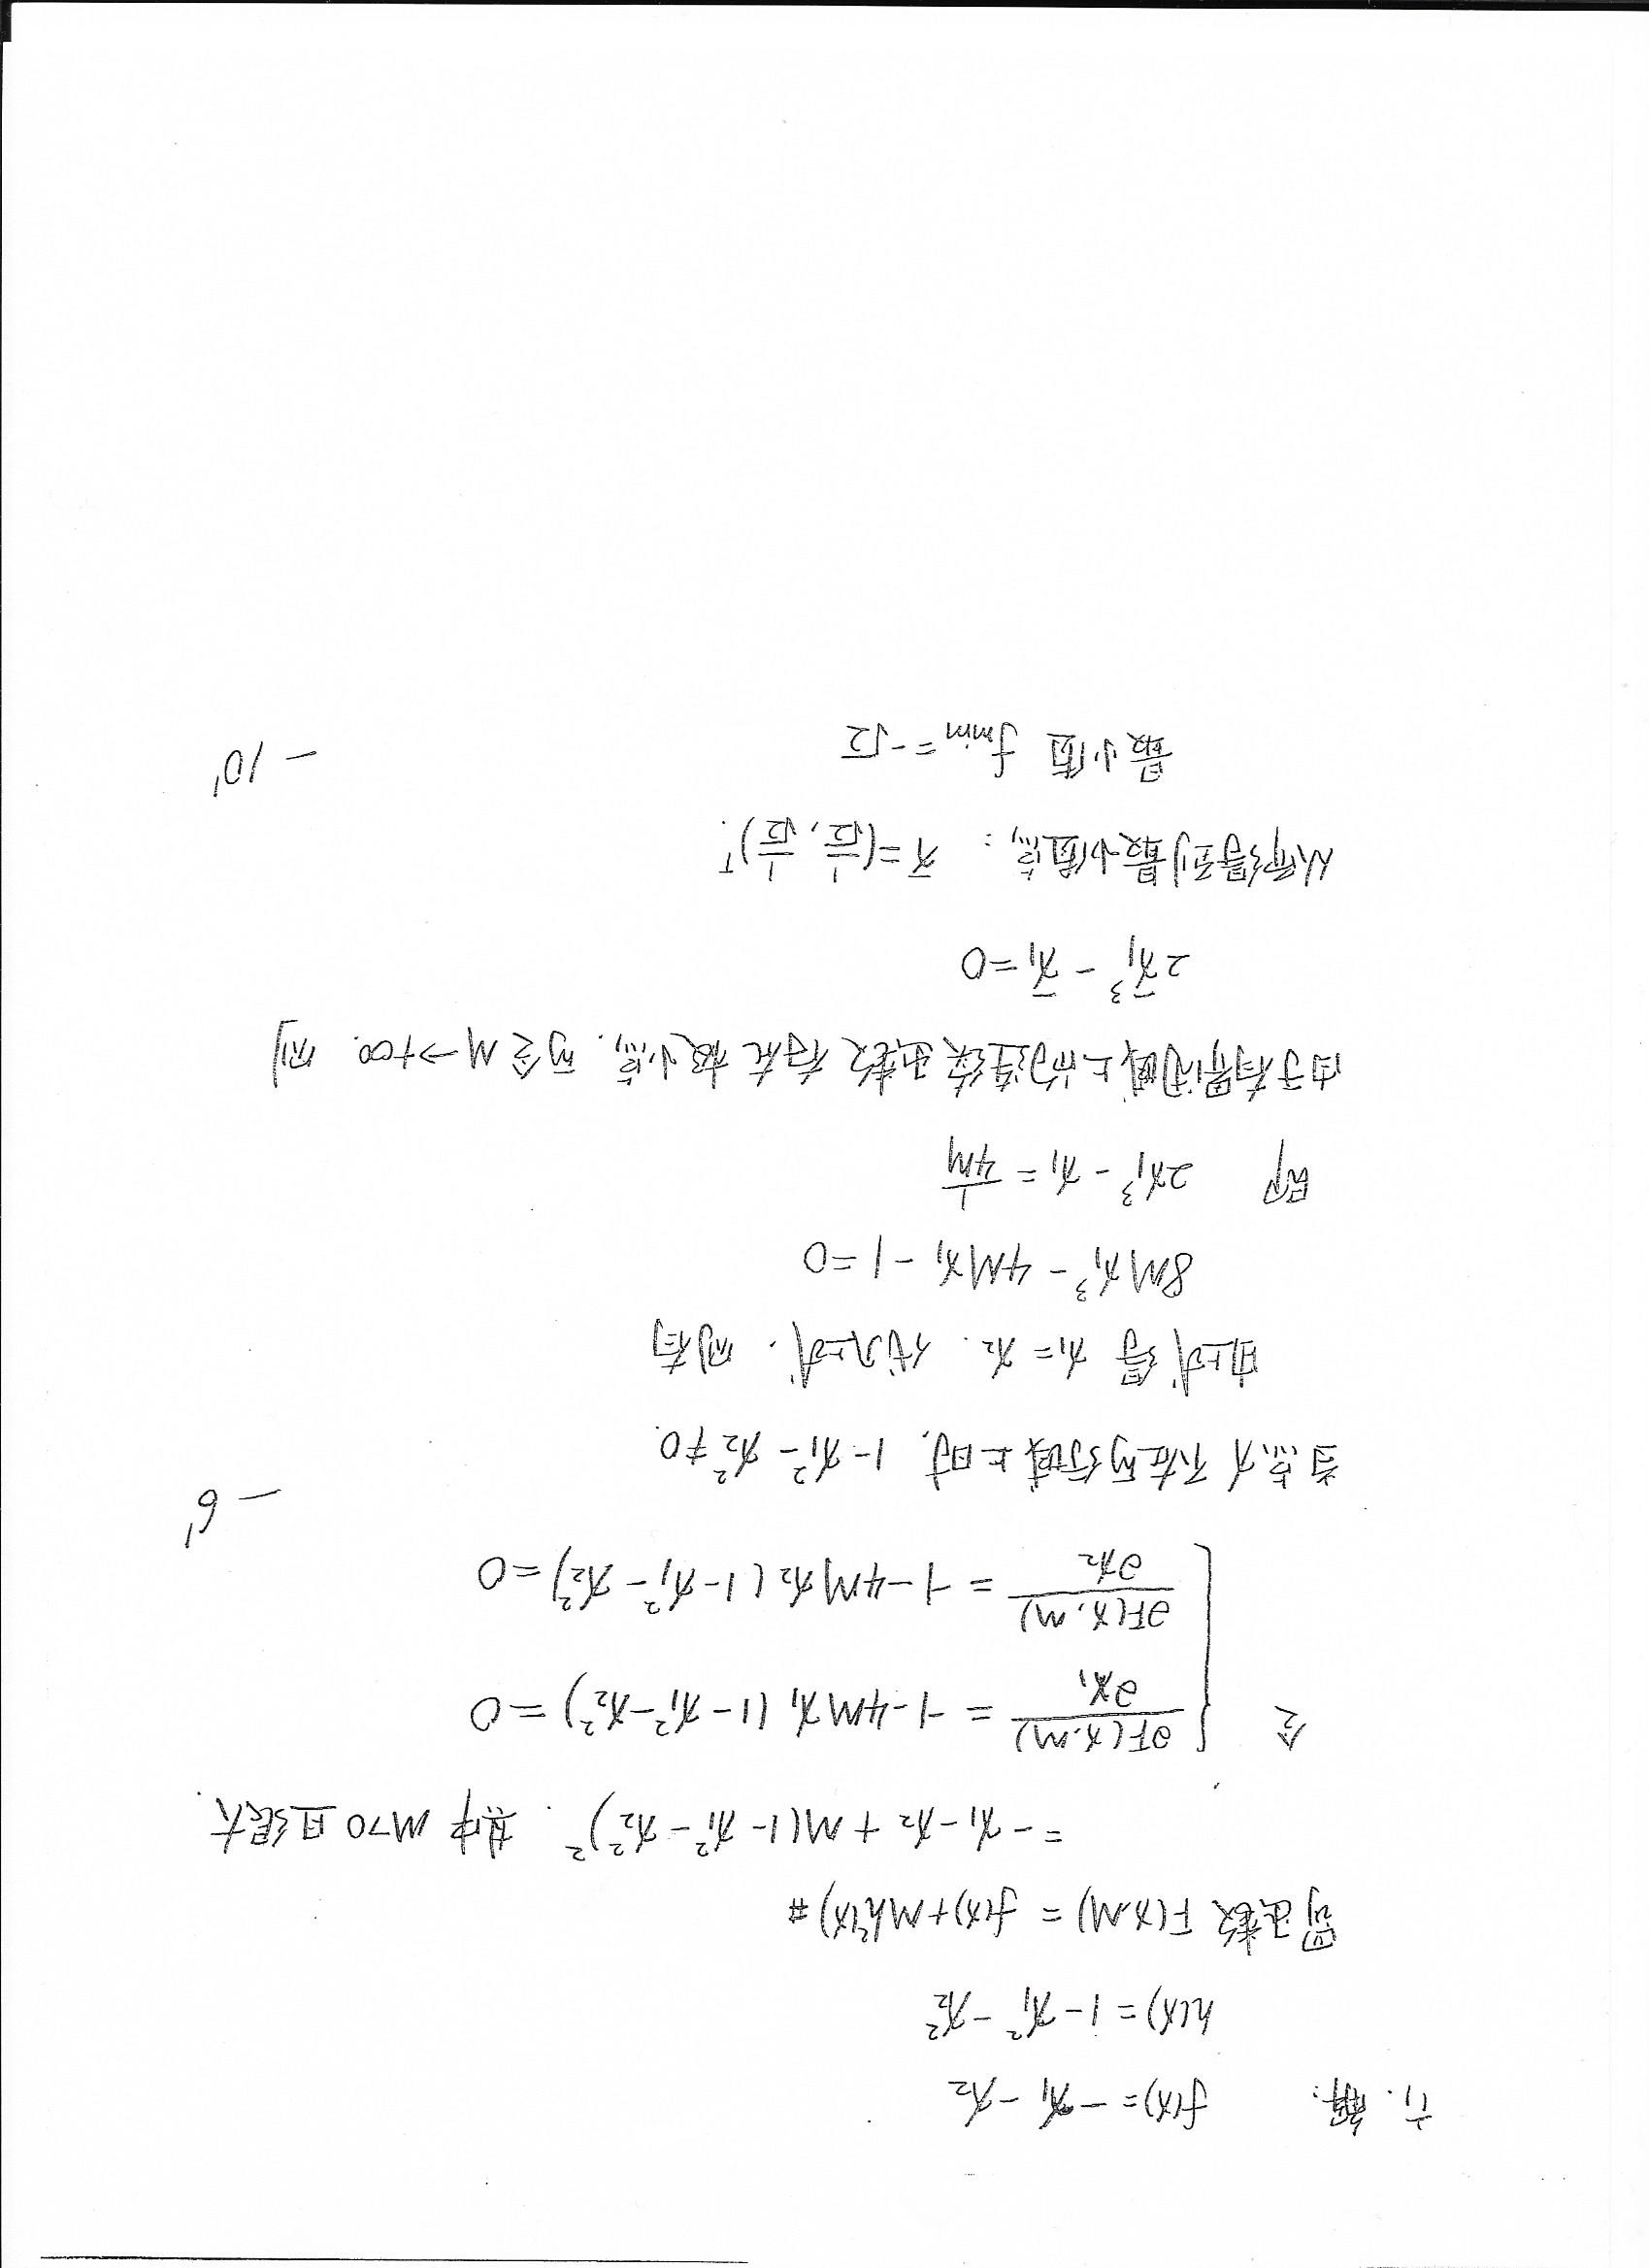 六. 解: f(x)= -x₁ -x₂
h(x)= 1-x₁² -x₂²
罚函数 F(x.M) = f(x)+Mh²(x) #
= -x₁-x₂ + M(1-x₁²-x₂²)². 其中 M>0 且很大.
令 { ∂F(x.M)/∂x₁ = -1-4Mx₁(1-x₁²-x₂²)=0
∂F(x.M)/∂x₂ = -1-4Mx₂(1-x₁²-x₂²)=0 — 6'
当点x不在可行域上时, 1-x₁²-x₂²≠0.
由上式得 x₁=x₂. 代入上式. 则有
8Mx₁³-4Mx₁-1=0
即 2x₁³-x₁=1/4M
由于有界闭域上的连续函数存在极小点. 可令 M→+∞. 则
2x̄₁³-x̄₁=0
从而得到最小值点: x̄=(1/√2, 1/√2)ᵀ.
最小值 fmin=-√2 — 10'